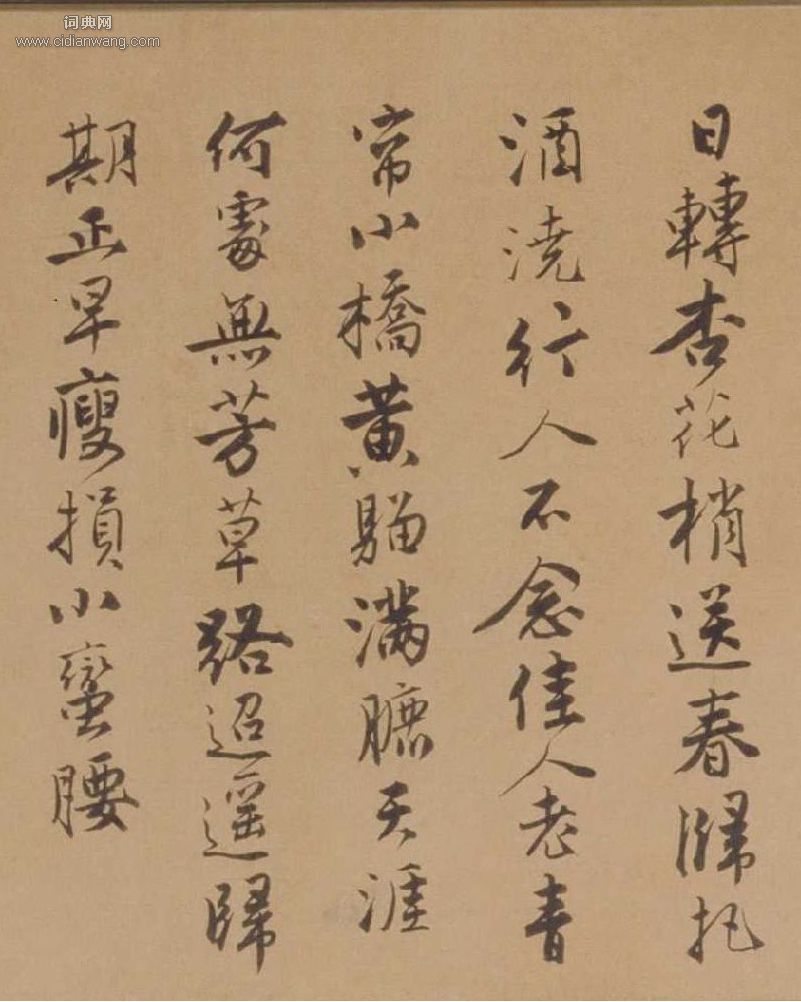 词典网
www.cidianwang.com
日轉杏花梢送春歸把
酒澆行人不念佳人老青
帘小橋黃騮滿臕天涯
何處無芳草路迢遥歸
期正早瘦損小蠻腰